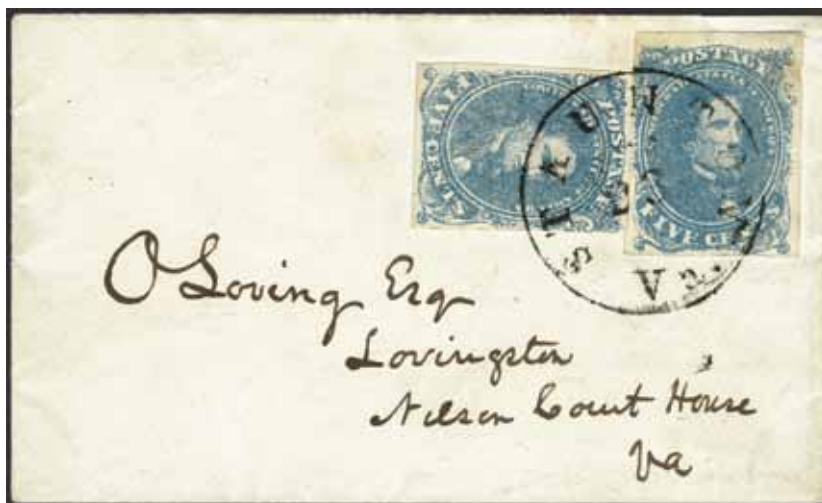 POSTAGE
FIVE CENTS
POSTAGE
FIVE CE
STAUNTON
Va.
O Loving Esq
Lovingston
Nelson Court House
Va